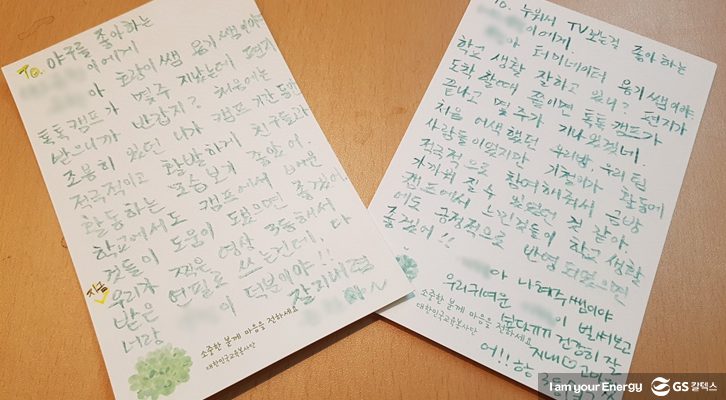 To. 야구를 좋아하는
이에게
아 호랑이쌤 용기쌤이야
톡톡캠프가 몇주 지났는데 편지
받으니까 반갑지? 처음에는
조용히 있던 니가 캠프 기간동안
적극적이고 활발하게 친구들과
활동하는 모습보기 좋았어.
학교에서도 캠프에서 나눴던
것들이 도움이 됐으면 좋겠어.
우리가 찍은 영상 3등해서
지금
받은 연필로 쓰는건데, 다
너랑 이 덕분이야!! 잘지내렴
소중한 분께 마음을 전하세요
대한민국교육봉사단
To. 누워서 TV보는걸 좋아하는
이에게.
아 터미네이터 용기쌤이야.
학교 생활 잘하고 있니? 편지가
도착할때 쯤이면 톡톡캠프가
끝나고 몇주가 지나있겠네.
처음 어색했던 우리방, 우리팀
사람들이었지만 활동에
적극적으로 참여해줘서 금방
가까워질 수 있었던 것 같아
캠프에서 느낀것들이 학교 생활
에도 긍정적으로 반영되었으면
좋겠어!!
아 나 쌤이야
우리귀여운
소중한 분께 마음을 전하세요
대한민국교육봉사단
건강히 잘
지내♡
I am your Energy GS칼텍스